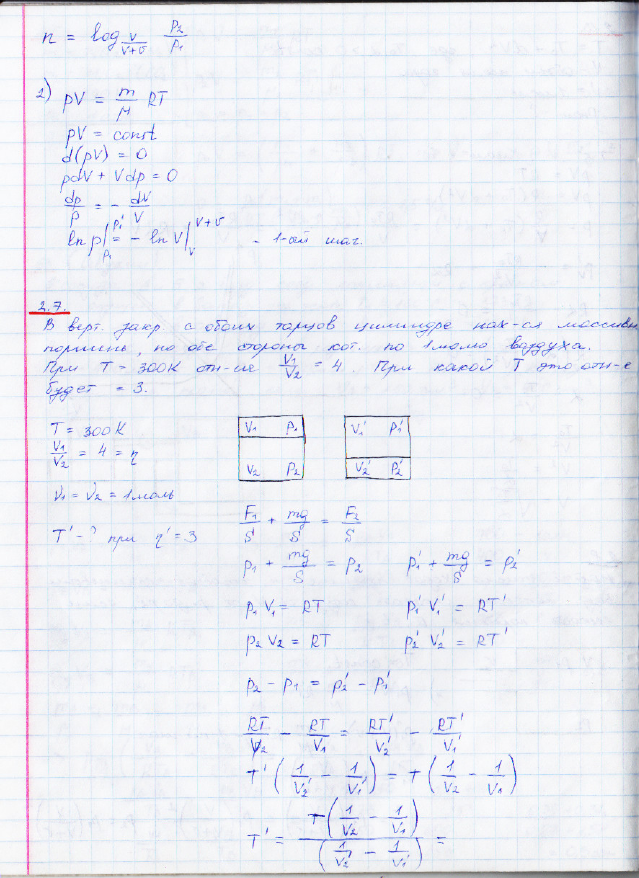 n = log_{V/(V+σ)} p₂/p₁
1) pV = m/μ RT
pV = const
d(pV) = 0
pdV + Vdp = 0
dp/p = - dV/V
ln p |_{p₁}^{p₁'} = - ln V |_V^{V+σ} - 1-ый шаг.
2.7.
В верт. закр с обоих торцов цилиндре нах-ся массивн
поршень, по обе стороны кот. по 1 молю воздуха.
При T = 300К отн-ие V₁/V₂ = 4. При какой T это отн-е
будет = 3.
T = 300K
V₁/V₂ = 4 = η
ν₁ = ν₂ = 1 моль
T' - ? при η' = 3
V₁ p₁
V₂ p₂
V₁' p₁'
V₂' p₂'
F₁/S + mg/S = F₂/S
p₁ + mg/S = p₂ p₁' + mg/S = p₂'
p₁V₁ = RT p₁'V₁' = RT'
p₂V₂ = RT p₂'V₂' = RT'
p₂ - p₁ = p₂' - p₁'
RT/V₂ - RT/V₁ = RT'/V₂' - RT'/V₁'
T'(1/V₂' - 1/V₁') = T(1/V₂ - 1/V₁)
T' = T(1/V₂ - 1/V₁)/(1/V₂' - 1/V₁') =